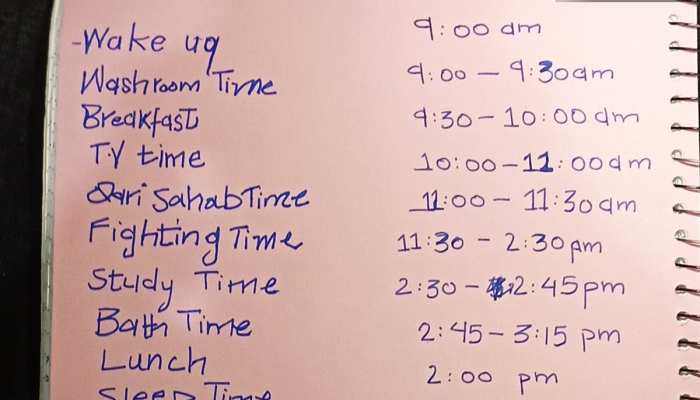 -Wake up 9:00 am
Washroom Time 9:00 - 9:30am
Breakfast 9:30 - 10:00 am
T.V time 10:00-11:00am
Qari Sahab Time 11:00 - 11:30am
Fighting Time 11:30 - 2:30pm
Study Time 2:30 - 2:45pm
Bath Time 2:45 - 3:15 pm
Lunch 2:00 pm
Sleep Time